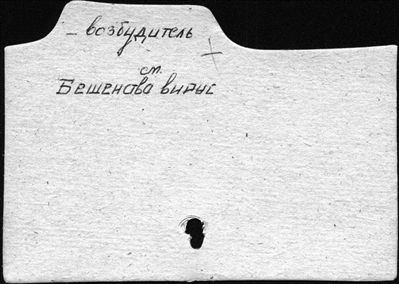 – возбудитель
см.
Бешенова вирус